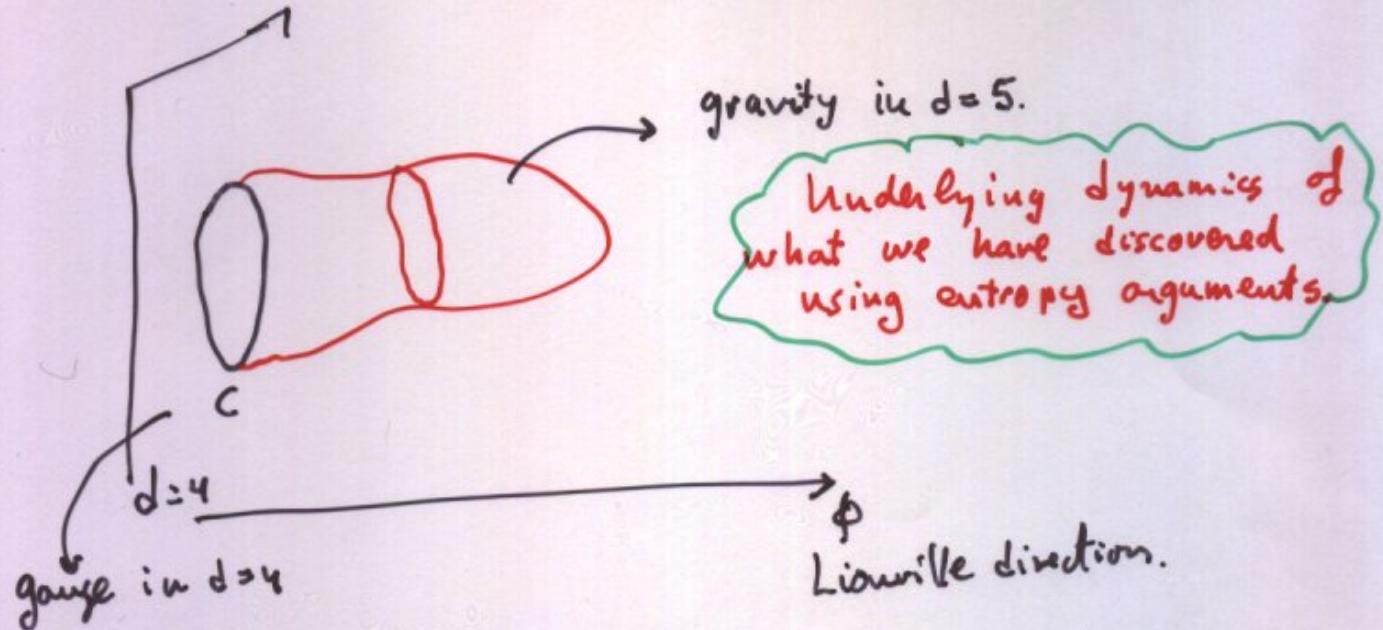 gravity in d=5.
Underlying dynamics of
what we have discovered
using entropy arguments.
C
d=4
ϕ
gauge in d=4
Liouville direction.